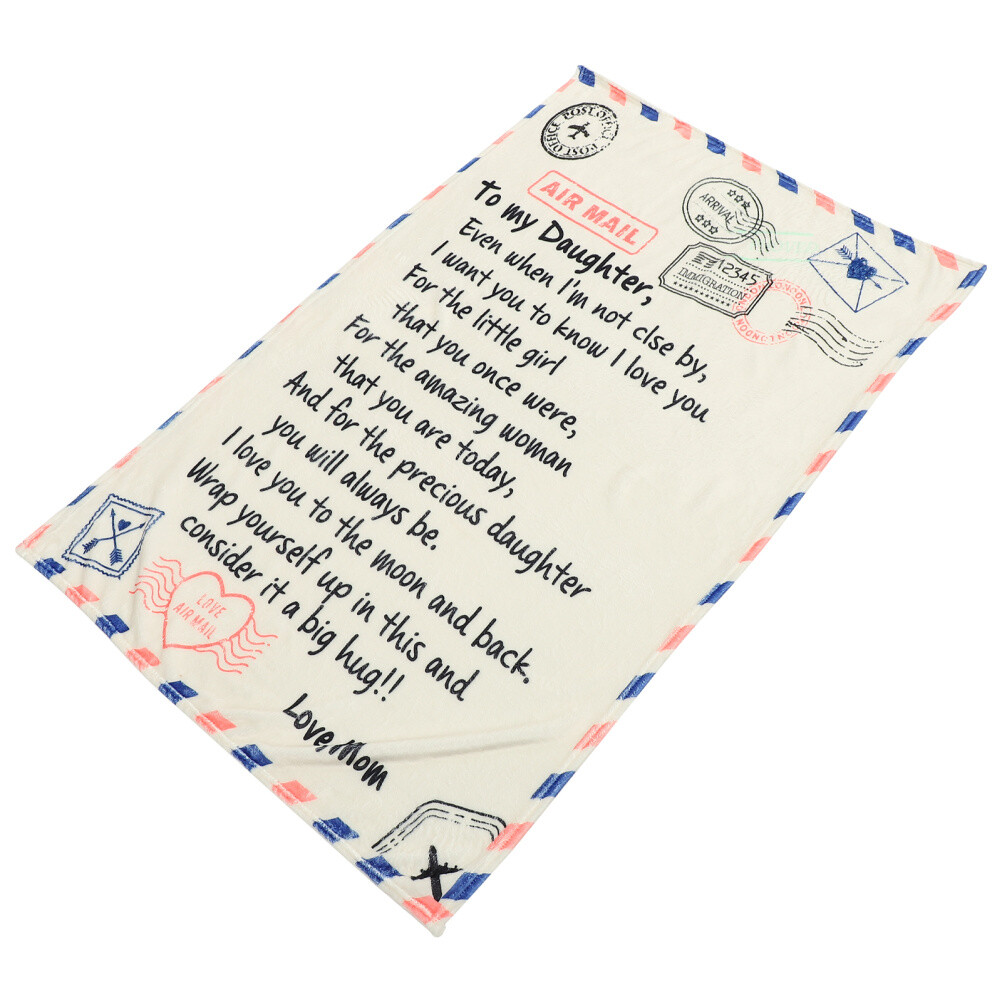 POST OFFICE
POST OFFICE
AIR MAIL
ARRIVAL
12345
IMMIGRATION
LONDON
LONDON
To my Daughter,
Even when I'm not clse by,
I want you to know I love you
For the little girl
that you once were,
For the amazing woman
that you are today,
And for the precious daughter
you will always be.
I love you to the moon and back.
Wrap yourself up in this and
consider it a big hug!!
Love,Mom
LOVE
AIR MAIL